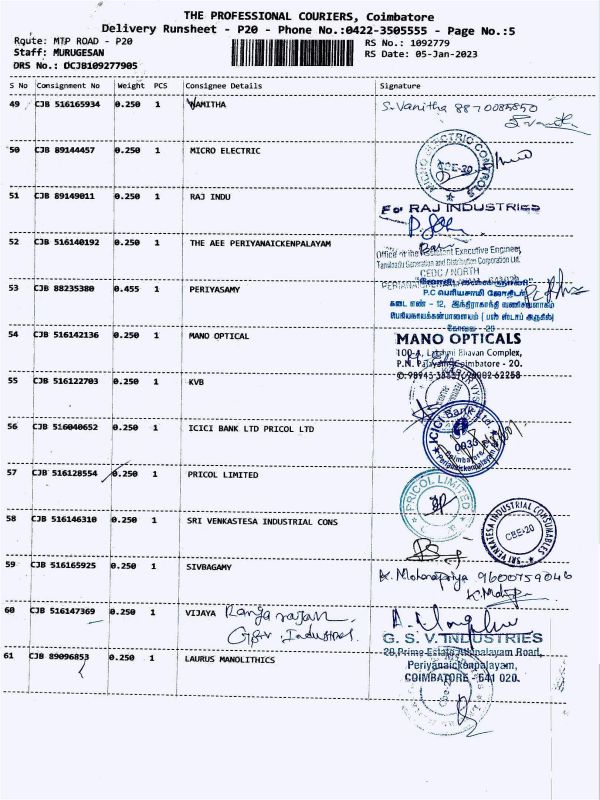 THE PROFESSIONAL COURIERS, Coimbatore
Delivery Runsheet - P20 - Phone No.:0422-3505555 - Page No.:5
Route: MTP ROAD - P20 RS No.: 1092779
Staff: MURUGESAN RS Date: 05-Jan-2023
DRS No.: DCJB109277905
S No Consignment No Weight PCS Consignee Details Signature
49 CJB 516165934 0.250 1 VAMITHA S. Vanitha 8870085850
50 CJB 89144457 0.250 1 MICRO ELECTRIC
MICRO ELECTRIC CONTROLS
CBE-20
51 CJB 89149011 0.250 1 RAJ INDU
For RAJ INDUSTRIES
52 CJB 516140192 0.250 1 THE AEE PERIYANAICKENPALAYAM
Office of the Assistant Executive Engineer,
Tamilnadu Generation and Distribution Corporation Ltd.
CEDC / NORTH
53 CJB 88235380 0.455 1 PERIYASAMY
P.C பெரியசாமி ஜோதிடர்
கடை எண் - 12,
54 CJB 516142136 0.250 1 MANO OPTICAL
MANO OPTICALS
100-A, Lakshmi Bhavan Complex,
P.N. Palayam, Coimbatore - 20.
55 CJB 516122703 0.250 1 KVB
56 CJB 516040652 0.250 1 ICICI BANK LTD PRICOL LTD
ICICI Bank Ltd
Coimbatore
Periyanaickenpalayam
57 CJB 516128554 0.250 1 PRICOL LIMITED
PRICOL LIMITED
58 CJB 516146310 0.250 1 SRI VENKASTESA INDUSTRIAL CONS
SRI VENKATESA INDUSTRIAL CONSUMABLES
CBE-20
59 CJB 516165925 0.250 1 SIVBAGAMY
K. Mohanapriya 9600759046
60 CJB 516147369 0.250 1 VIJAYA Rangarajan
Gsv. Industries.
G. S. V. INDUSTRIES
61 CJB 89096853 0.250 1 LAURUS MANOLITHICS
Periyanaickenpalayam,
COIMBATORE - 641 020.